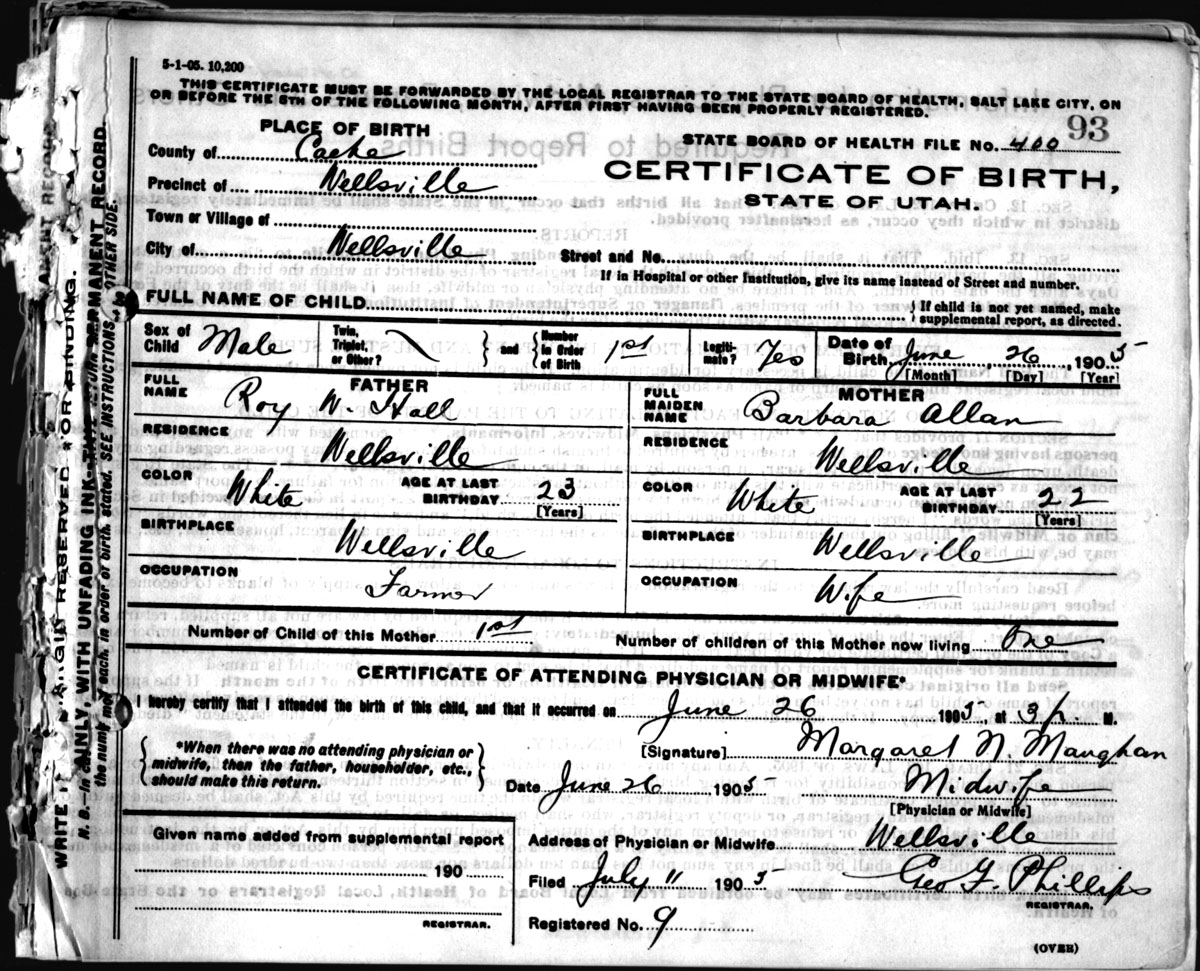 5-1-05. 10,200
THIS CERTIFICATE MUST BE FORWARDED BY THE LOCAL REGISTRAR TO THE STATE BOARD OF HEALTH, SALT LAKE CITY, ON
OR BEFORE THE 5TH OF THE FOLLOWING MONTH, AFTER FIRST HAVING BEEN PROPERLY REGISTERED.
93
PLACE OF BIRTH
STATE BOARD OF HEALTH FILE No. 400
County of Cache
CERTIFICATE OF BIRTH,
Precinct of Wellsville
STATE OF UTAH.
Town or Village of
City of Wellsville
Street and No.
If in Hospital or other Institution, give its name instead of Street and number.
FULL NAME OF CHILD
{ If child is not yet named, make
supplemental report, as directed.
Sex of Child Male
Twin, Triplet, or Other?
} and { Number in Order of Birth 1st
Legiti-mate? Yes
Date of Birth June 26, 1905
[Month] [Day] [Year]
FATHER
FULL NAME Roy W. Hall
RESIDENCE Wellsville
COLOR White
AGE AT LAST BIRTHDAY 23
[Years]
BIRTHPLACE Wellsville
OCCUPATION Farmer
MOTHER
FULL MAIDEN NAME Barbara Allan
RESIDENCE Wellsville
COLOR White
AGE AT LAST BIRTHDAY 22
[Years]
BIRTHPLACE Wellsville
OCCUPATION Wife
Number of Child of this Mother 1st
Number of children of this Mother now living One
CERTIFICATE OF ATTENDING PHYSICIAN OR MIDWIFE*
I hereby certify that I attended the birth of this child, and that it occurred on June 26 1905, at 3 p. M.
{ *When there was no attending physician or
midwife, then the father, householder, etc.,
should make this return. }
[Signature] Margaret N. Maughan
Date June 26 1905
Midwife
[Physician or Midwife]
Given name added from supplemental report
190
REGISTRAR.
Address of Physician or Midwife Wellsville
Filed July 11 1905
Geo G. Phillips
REGISTRAR.
Registered No. 9
(OVER)
WRITE PLAINLY, WITH UNFADING INK
PERMANENT RECORD.
RESERVED FOR BINDING.
SEE INSTRUCTIONS
OTHER SIDE.